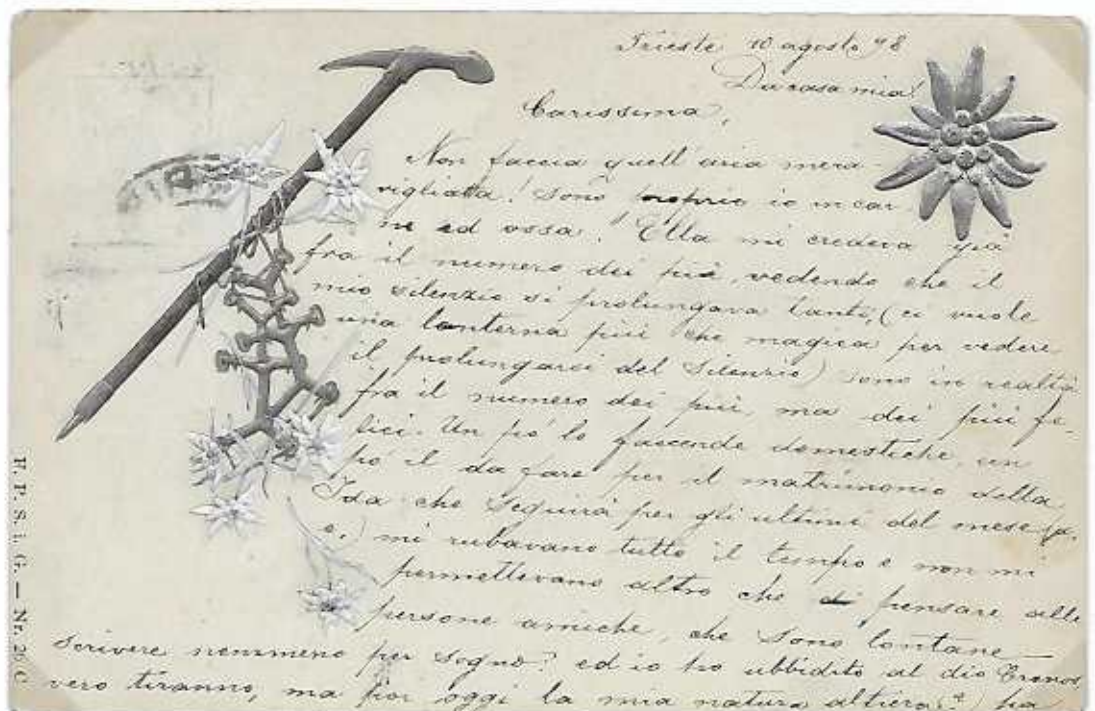 Trieste 10 agosto 98
Da casa mia!
Carissima,
Non faccia quell'aria mera-
vigliata! Sono proprio io in car
ne ed ossa. Ella mi credeva già
fra il numero dei più, vedendo che il
mio silenzio si prolungava tanto, (ci vuole
una lanterna più che magica per vedere
il prolungarsi del Silenzio) sono in realtà
fra il numero dei più, ma dei più fe-
lici. Un po' le faccende domestiche, un
po' il da fare per il matrimonio della
Ida che seguirà per gli ultimi del mese
mi rubavano tutto il tempo e non mi
permettevano altro che di pensare alle
persone amiche, che sono lontane —
scrivere nemmeno per sogno! ed io ho ubbidito al dio Cronos,
vero tiranno, ma per oggi la mia natura altiera (?) ha
F. P. S. i. G. — Nr. 26 C